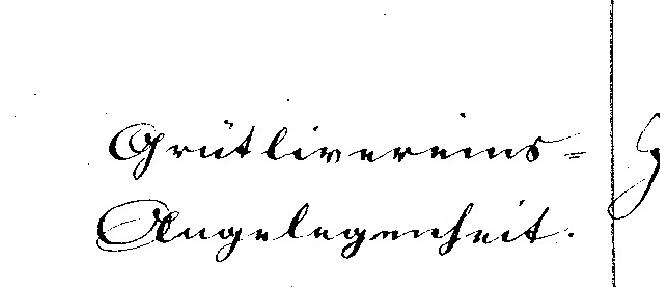 Grütlivereins-
Angelegenheit.